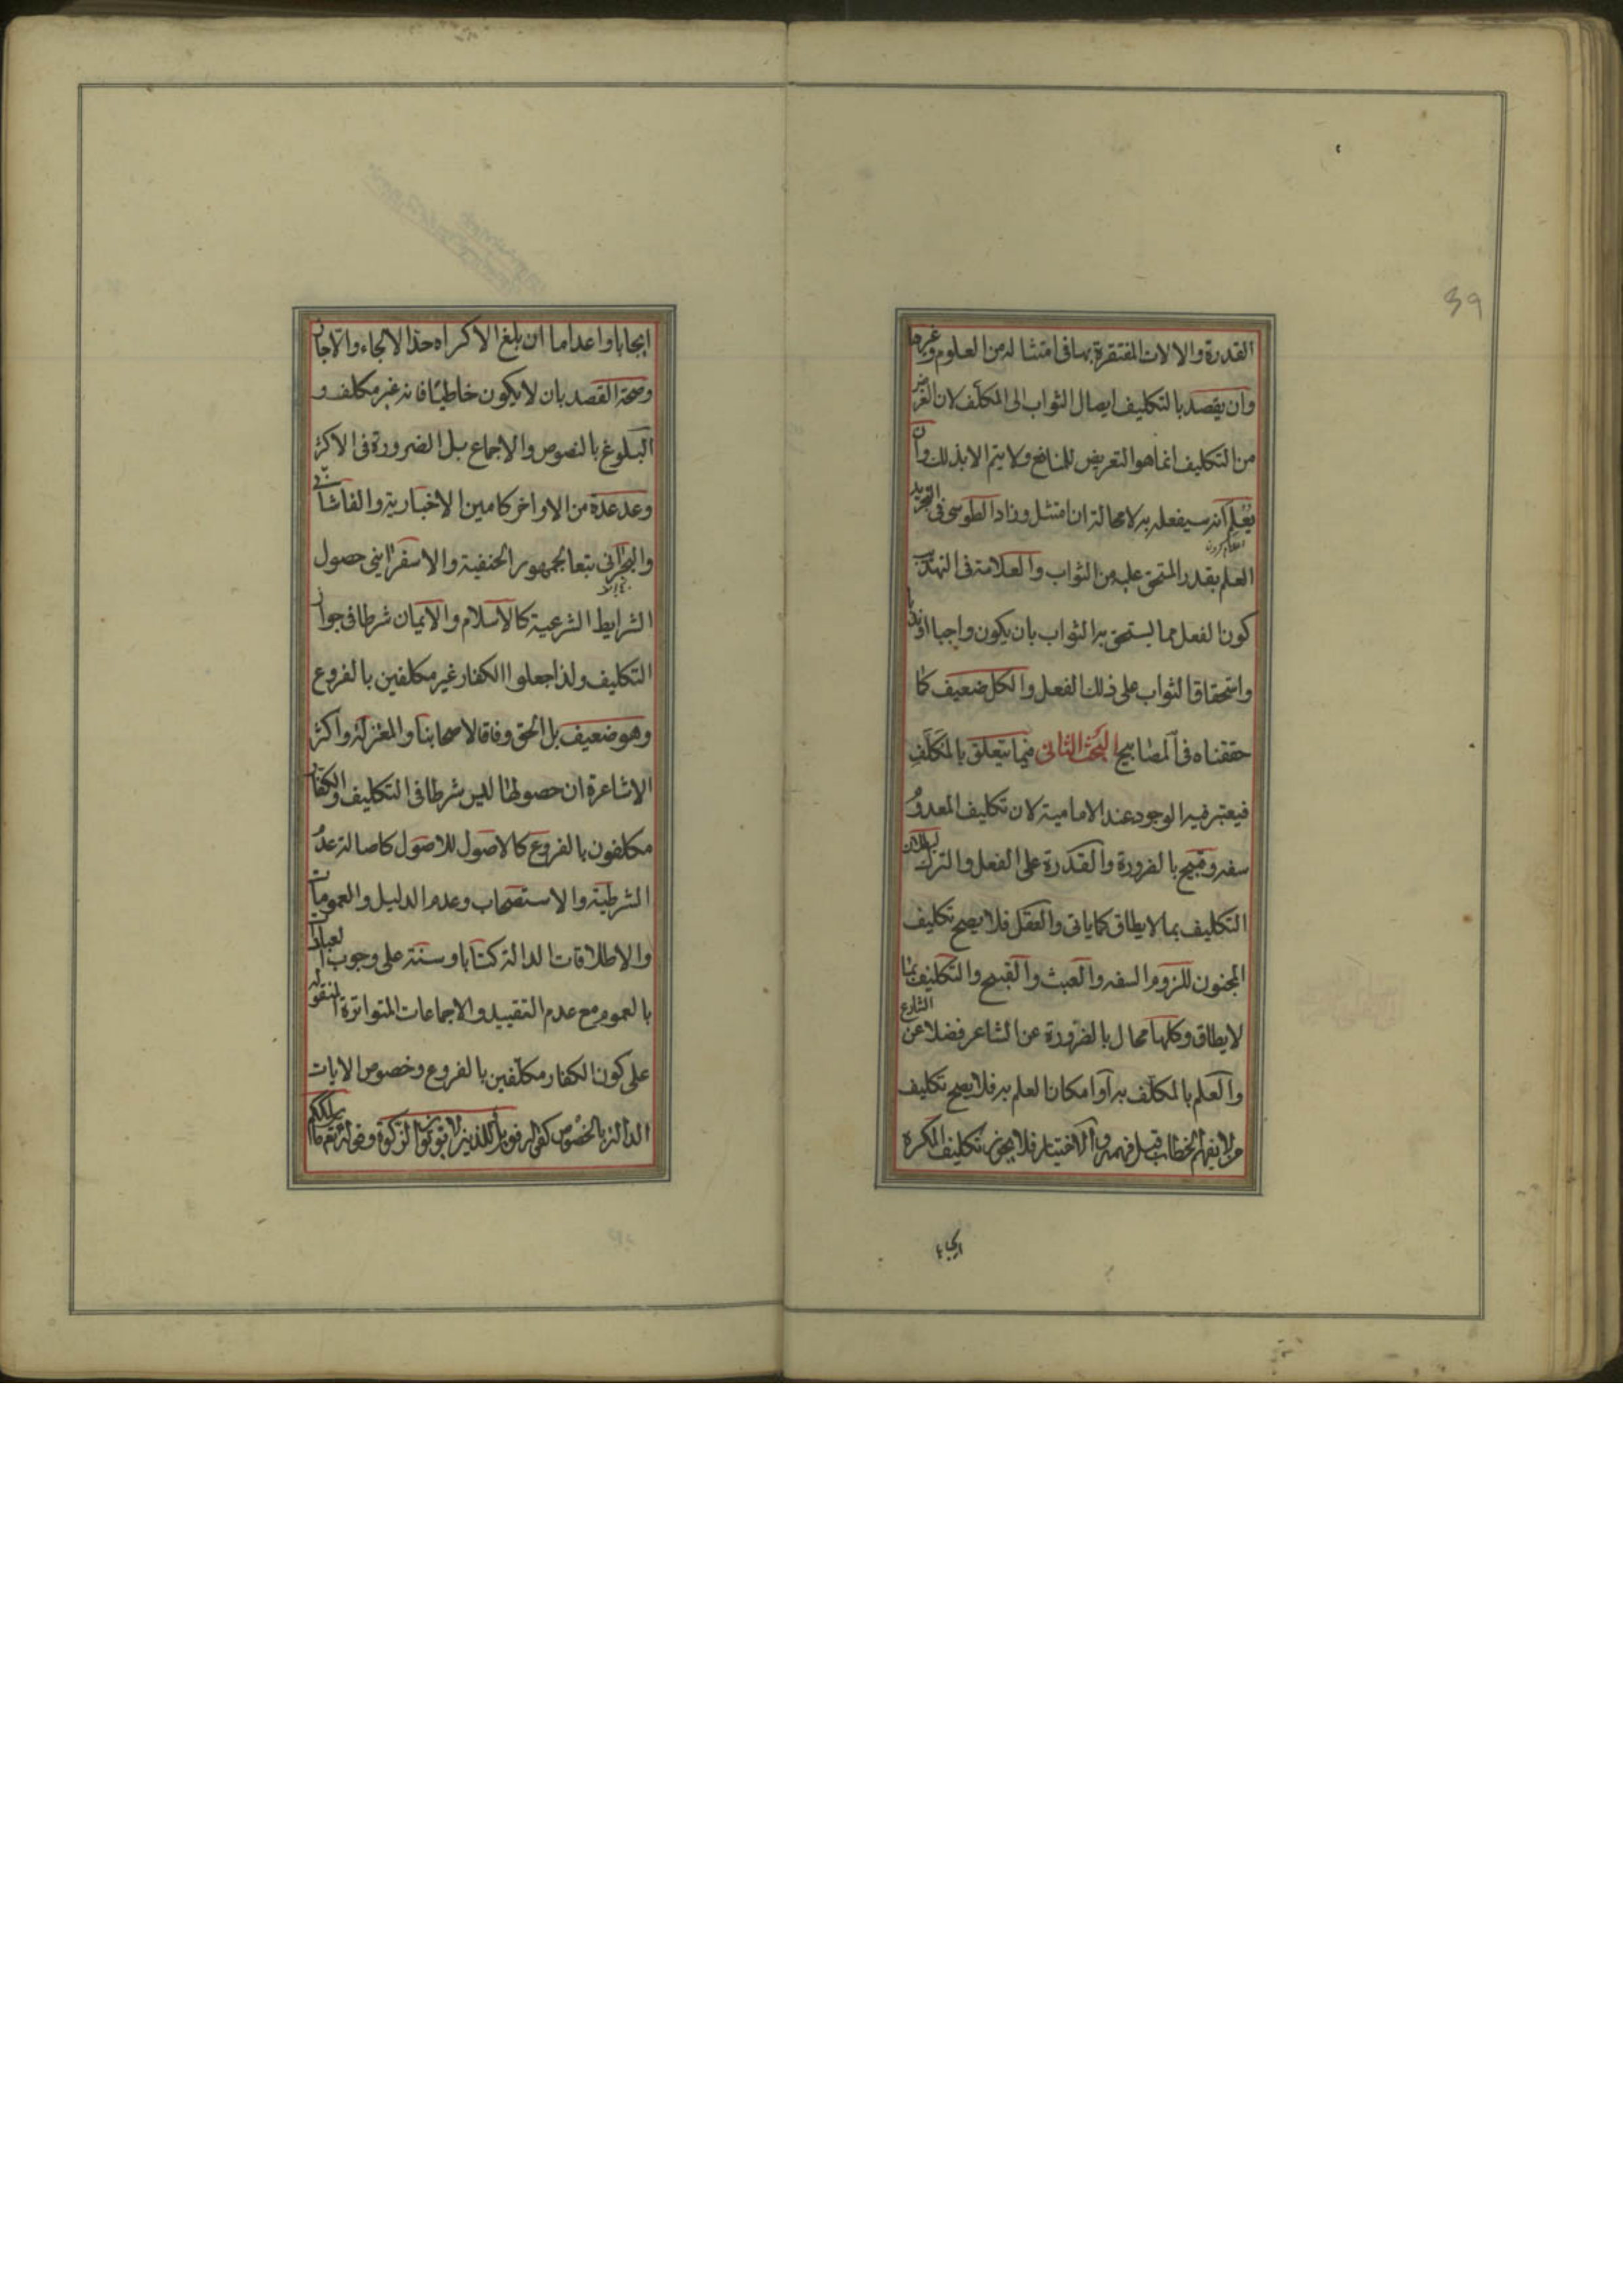 39
القدرة والالات المفتقرة بها فى امتثاله من العلوم وغيرها
وان يقصد بالتكليف ايصال الثواب الى المكلف لان الغرض
من التكليف انما هو التعريض للمنافع ولا يتم الا بذلك وان
يعلم انه سيفعله به لا محالة ان امتثل وزاد الطوسى فى التجريد
العلم بقدر المستحق عليه من الثواب والعلامة فى التهذيب
كون الفعل مما يستحق به الثواب بان يكون واجبا او ندبا
واستحقاق الثواب على ذلك الفعل والكل ضعيف كما
حققناه فى المصابيح البحث الثانى فيما يتعلق بالمكلف
فيعتبر فيه الوجود عند الامامية لان تكليف المعدوم
سفه وقبيح بالضرورة والقدرة على الفعل والترك لبطلان
التكليف بما لا يطاق كما ياتى والعقل فلا يصح تكليف
المجنون للزوم السفه والعبث والقبيح والتكليف بما
لا يطاق وكلها محال بالضرورة عن الشاعر فضلا عن الشارع
والعلم بالمكلف به او امكان العلم به فلا يصح تكليف
من لا يفهم الخطاب قبل فهمه والاختيار فلا يجوز تكليف المكره
ايجابا
ايجابا واعداما ان بلغ الاكراه حد الالجاء والا جاز
وصحة القصد بان لا يكون خاطئا فانه غير مكلف و
البلوغ بالنصوص والاجماع بل الضرورة فى الاكثر
وعد عدة من الاواخر كامين الاخبارية والفاشانى
والبحرانى تبعا لجمهور الحنفية والاسفراينى حصول
الشرايط الشرعية كالاسلام والايمان شرطا فى جواز
التكليف ولذا جعلوا الكفار غير مكلفين بالفروع
وهو ضعيف بل الحق وفاقا لاصحابنا والمعتزلة واكثر
الاشاعرة ان حصولها ليس شرطا فى التكليف والكفار
مكلفون بالفروع كالاصول للاصول كاصالة عدم
الشرطية والاستصحاب وعدم الدليل والعمومات
والاطلاقات الدالة كتابا وسنة على وجوب العبادات
بالعموم مع عدم التقييد والاجماعات المتواترة المنقولة
على كون الكفار مكلفين بالفروع وخصوص الايات
الدالة بالخصوص كقوله فويل للذين لا يؤتون الزكوة وقوله تعم ما سلككم